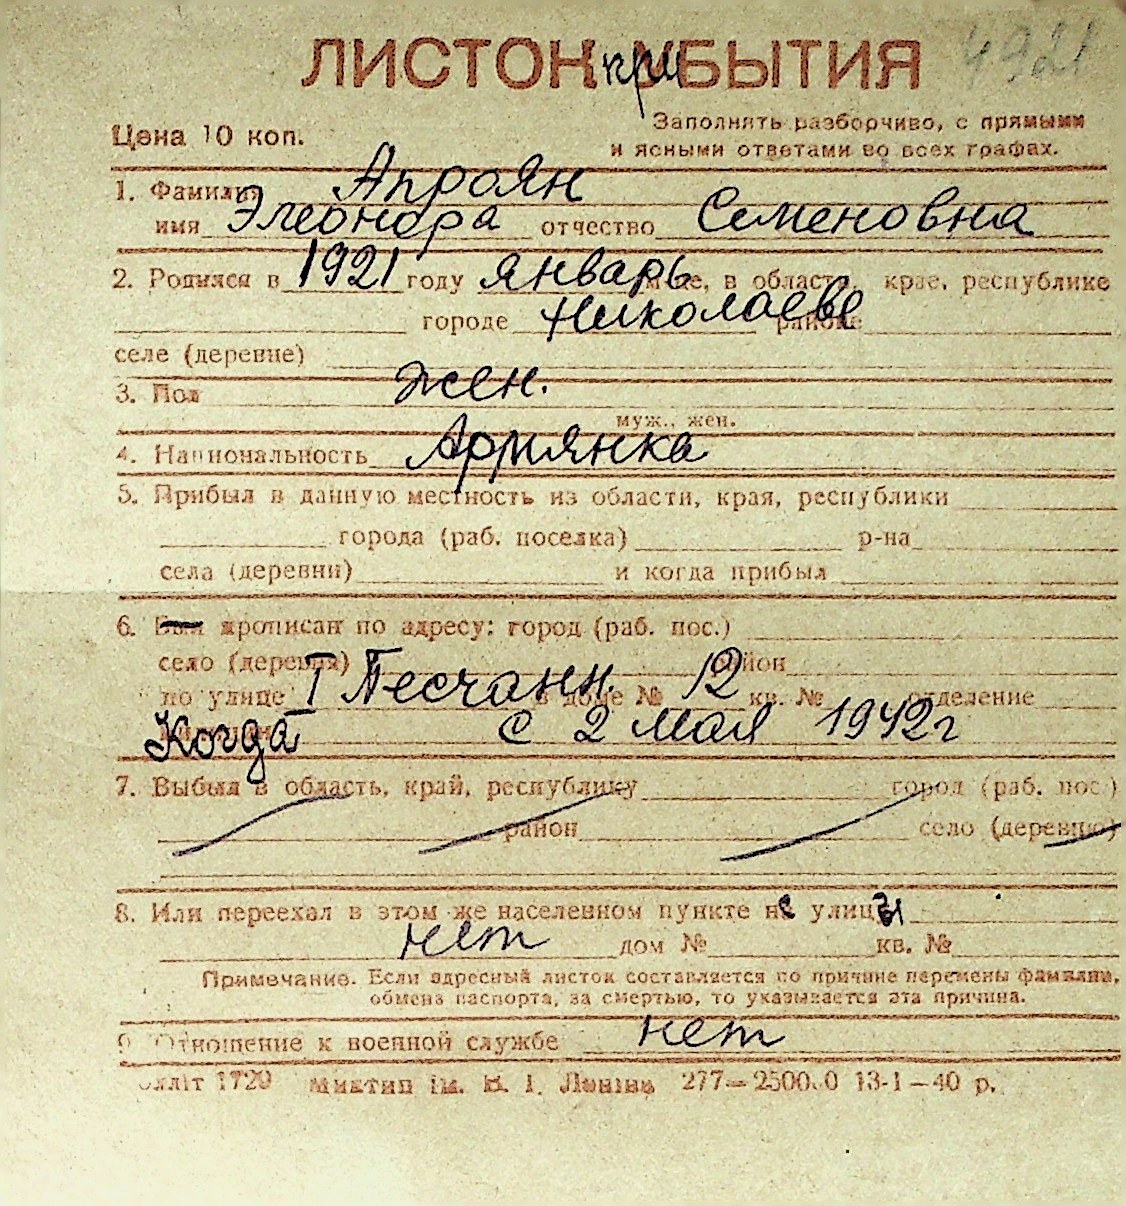 ЛИСТОК при УБЫТИЯ 4921
Цена 10 коп.
Заполнять разборчиво, с прямыми
и ясными ответами во всех графах.
1. Фамилия Апроян
имя Элеонора отчество Семеновна
2. Родился в 1921 году январь м-це, в области, крае, республике
городе Николаеве районе
селе (деревне)
3. Пол жен.
муж., жен.
4. Национальность Армянка
5. Прибыл в данную местность из области, края, республики
города (раб. поселка) р-на
села (деревни) и когда прибыл
6. Был прописан по адресу: город (раб. пос.)
село (деревня) район
по улице I Песчанн. в доме № 12 кв. № отделение
Когда с 2 мая 1942 г
7. Выбыл в область, край, республику город (раб. пос.)
район село (деревню)
8. Или переехал в этом же населенном пункте не улицы
нет дом № кв. №
Примечание. Если адресный листок составляется по причине перемены фамилии,
обмена паспорта, за смертью, то указывается эта причина.
9. Отношение к военной службе нет
1720 ім. В. І. Леніна 277—2500.0 13-1—40 р.